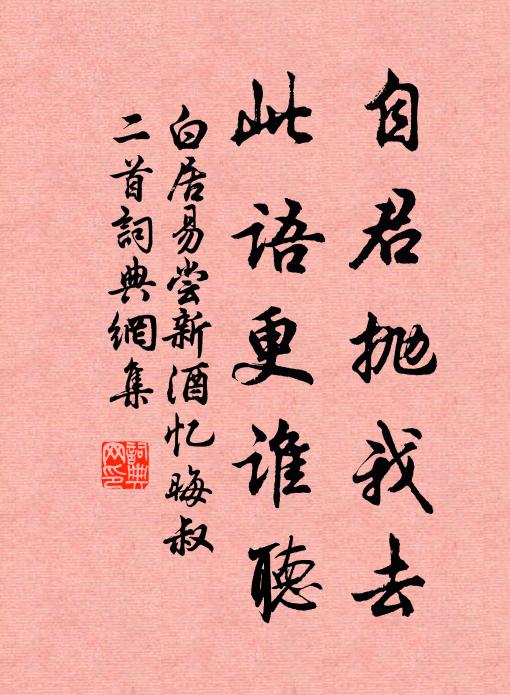 自君抛我去
此语更谁聽
白居易尝新酒忆晦叔
二首詞典網集
詞典
网印